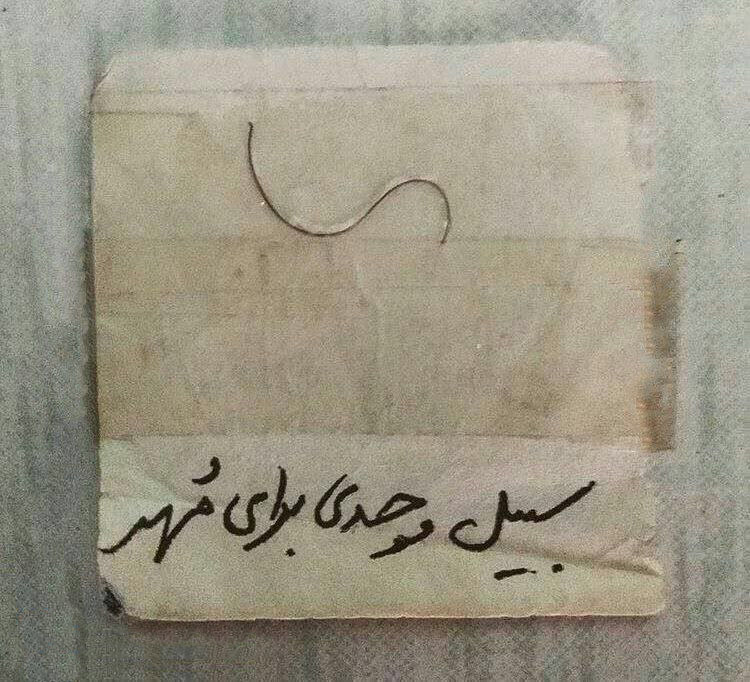 سبیل موحدی برای مُهر